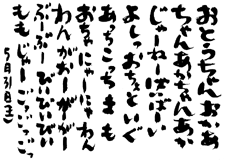 おとうちゃんおかあ
ちゃんあかちゃんあか
じゃーねーばいばーい
よしっおちちえといぐ
あっちこっちも
おちゃにゃーにゃわん
わんがおーがーがー
ぶーぶーびいびいびい
ももじゃーごーごっごっ
5月31日(土)